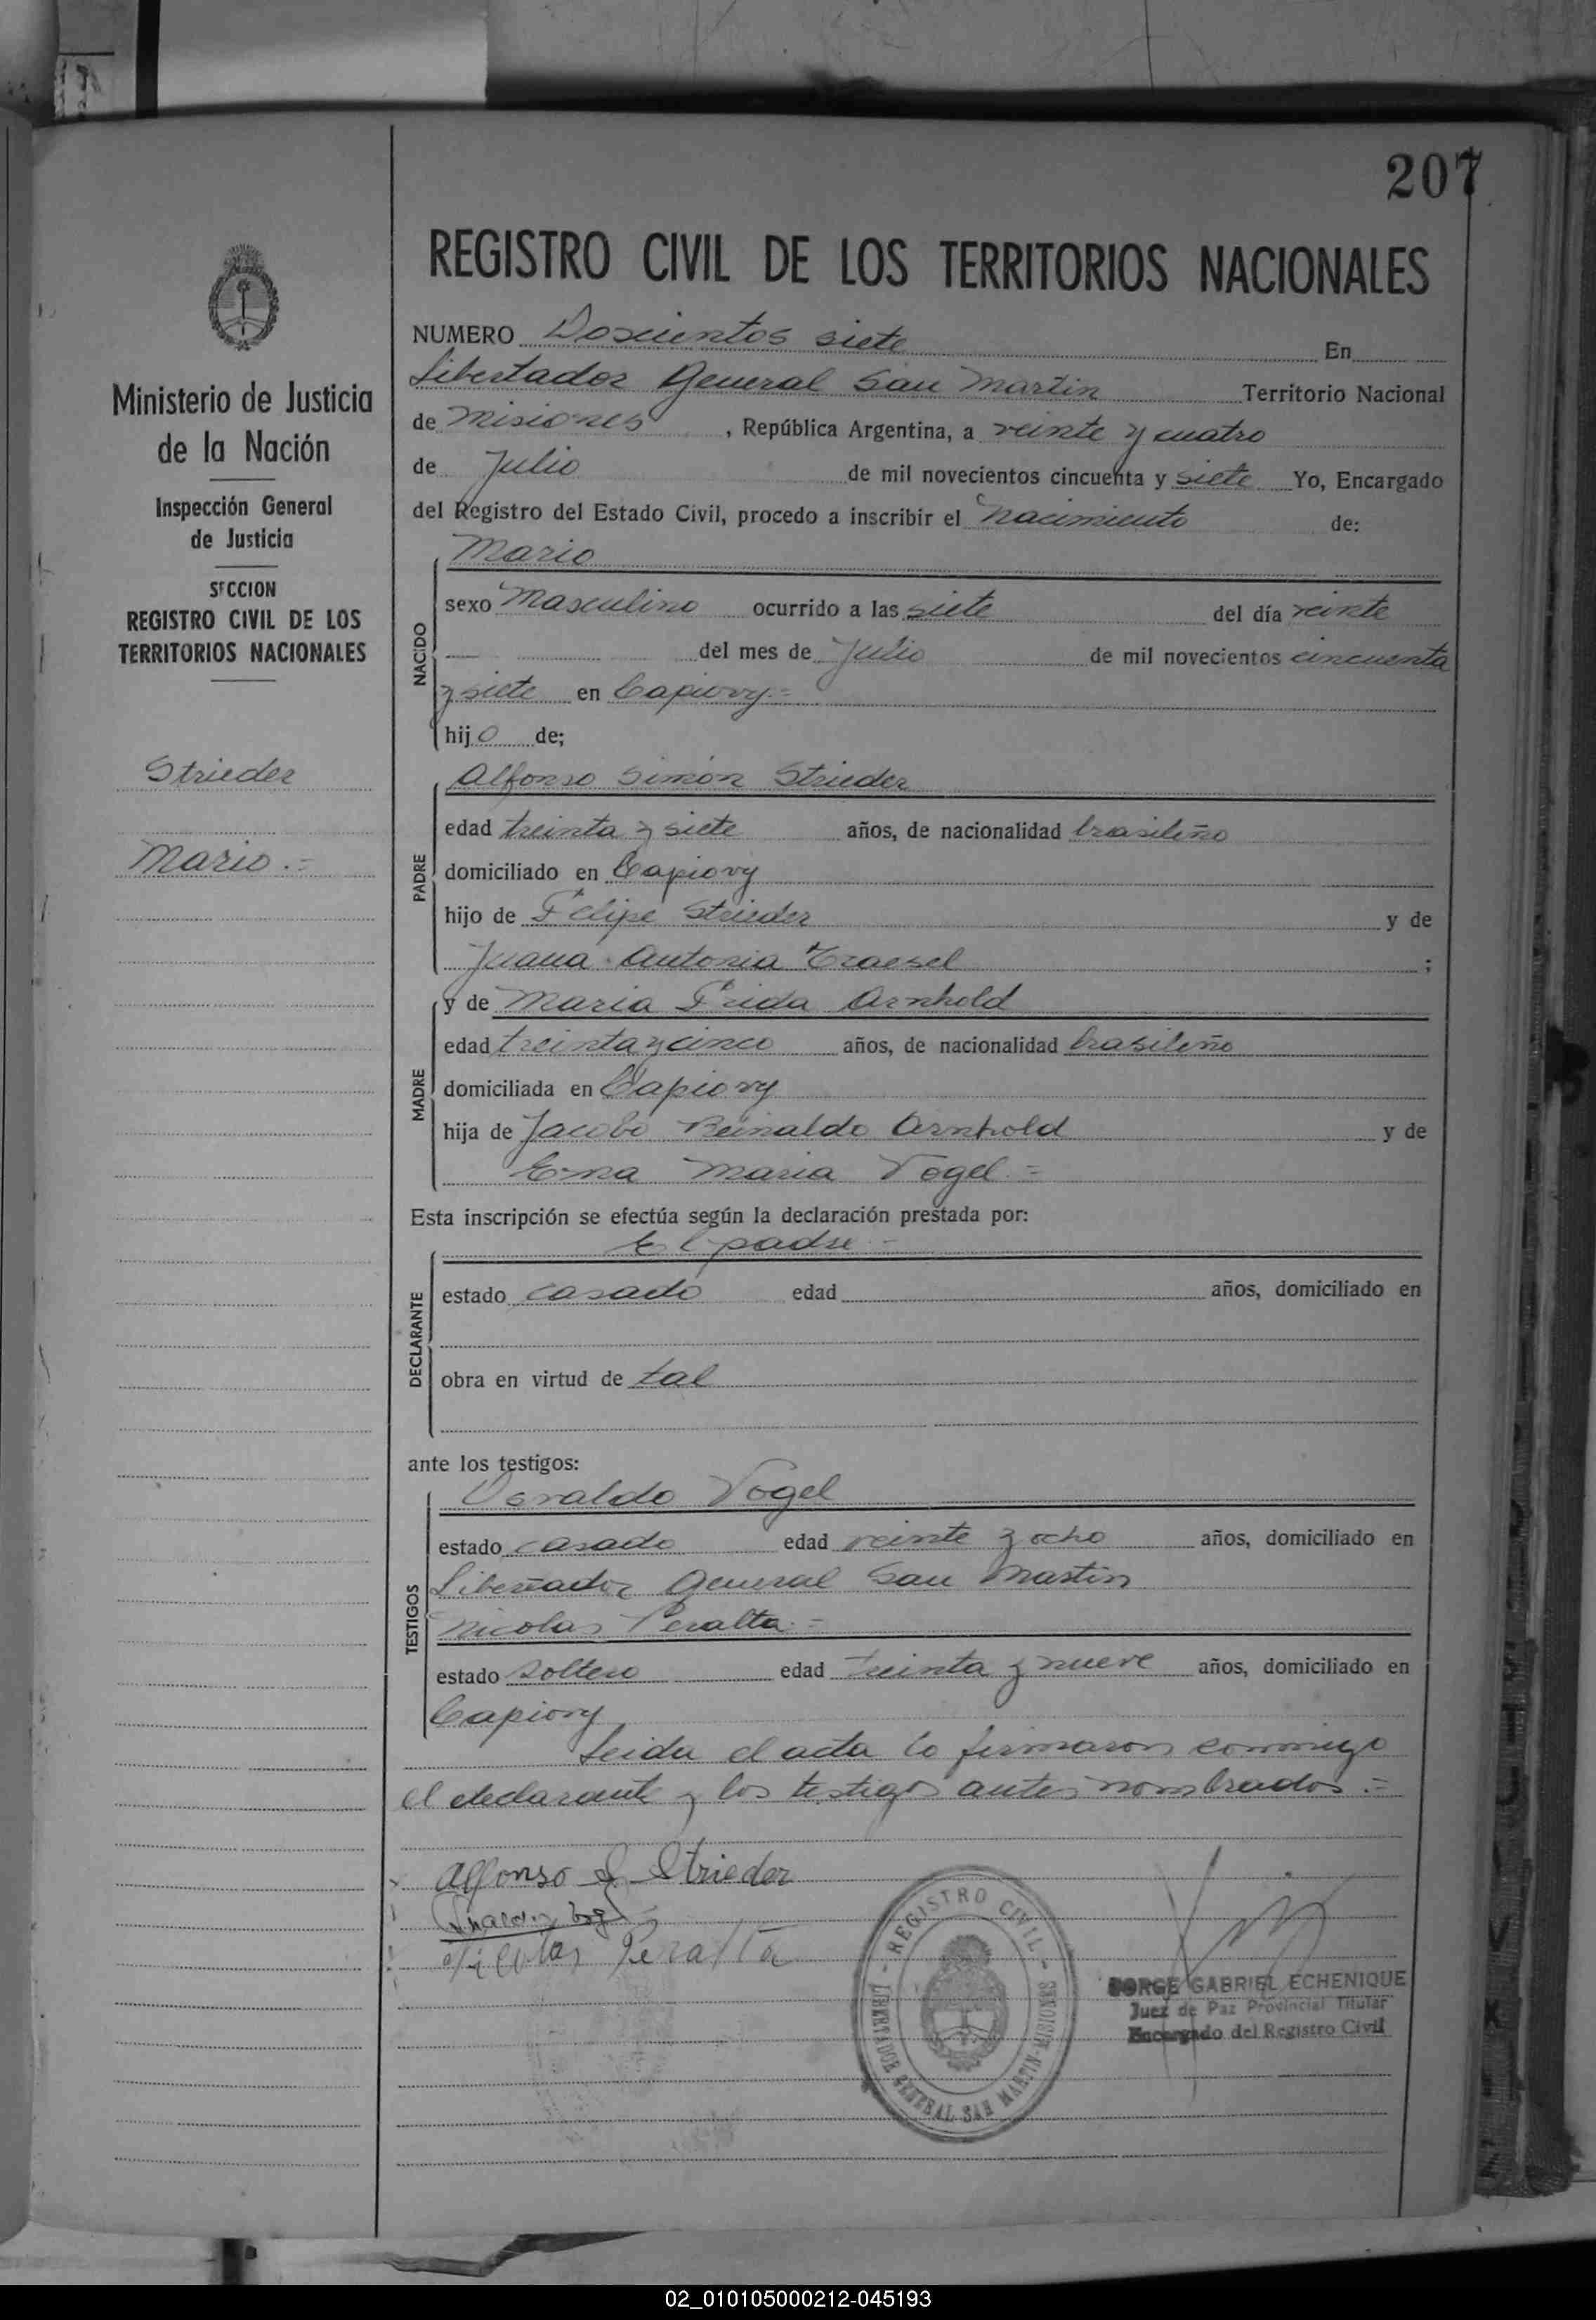 207
REGISTRO CIVIL DE LOS TERRITORIOS NACIONALES
Ministerio de Justicia
de la Nación
Inspección General
de Justicia
SECCION
REGISTRO CIVIL DE LOS
TERRITORIOS NACIONALES
Strieder
Mario.=
NUMERO Doscientos siete En
Libertador General San Martin Territorio Nacional
de Misiones, República Argentina, a veinte y cuatro
de Julio de mil novecientos cincuenta y siete Yo, Encargado
del Registro del Estado Civil, procedo a inscribir el nacimiento de:
NACIDO
Mario
sexo Masculino ocurrido a las siete del día veinte
del mes de Julio de mil novecientos cincuenta
y siete en Capiovy=
hijo de;
PADRE
Alfonso Simón Strieder
edad treinta y siete años, de nacionalidad brasileño
domiciliado en Capiovy
hijo de Felipe Strieder y de
Juana Antonia Traesel ;
MADRE
y de Maria Frida Arnhold
edad treinta y cinco años, de nacionalidad brasileño
domiciliada en Capiovy
hija de Jacobo Reinaldo Arnhold y de
Ema Maria Vogel=
Esta inscripción se efectúa según la declaración prestada por:
DECLARANTE
El padre-
estado casado edad años, domiciliado en
obra en virtud de tal
ante los testigos:
TESTIGOS
Osvaldo Vogel
estado casado edad veinte y ocho años, domiciliado en
Libertador General San Martin
Nicolas Peralta.=
estado soltero edad treinta y nueve años, domiciliado en
Capiovy
Leida el acta lo firmaron conmigo
el declarante y los testigos antes nombrados.=
Alfonso S Strieder
Nicolas Peralta
REGISTRO CIVIL
LIBERTADOR GENERAL SAN MARTIN-MISIONES
JORGE GABRIEL ECHENIQUE
Juez de Paz Provincial Titular
Encargado del Registro Civil
02_010105000212-045193